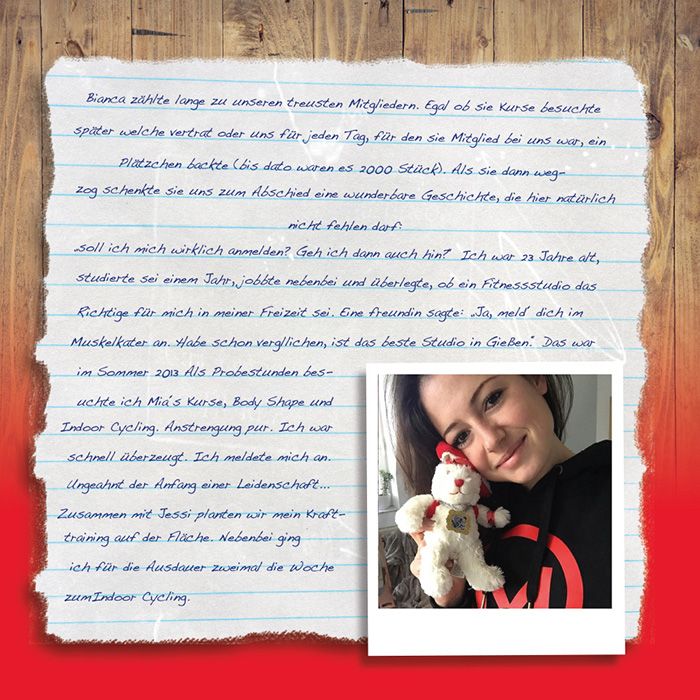 Bianca zählte lange zu unseren treusten Mitgliedern. Egal ob sie Kurse besuchte
später welche vertrat oder uns für jeden Tag, für den sie Mitglied bei uns war, ein
Plätzchen backte (bis dato waren es 2000 Stück). Als sie dann weg-
zog schenkte sie uns zum Abschied eine wunderbare Geschichte, die hier natürlich
nicht fehlen darf:
„soll ich mich wirklich anmelden? Geh ich dann auch hin?" Ich war 23 Jahre alt,
studierte sei einem Jahr, jobbte nebenbei und überlegte, ob ein Fitnessstudio das
Richtige für mich in meiner Freizeit sei. Eine freundin sagte: „Ja, meld' dich im
Muskelkater an. Habe schon verglichen, ist das beste Studio in Gießen." Das war
im Sommer 2013 Als Probestunden bes-
uchte ich Mia's Kurse, Body Shape und
Indoor Cycling. Anstrengung pur. Ich war
schnell überzeugt. Ich meldete mich an.
Ungeahnt der Anfang einer Leidenschaft...
Zusammen mit Jessi planten wir mein Kraft-
training auf der Fläche. Nebenbei ging
ich für die Ausdauer zweimal die Woche
zumIndoor Cycling.